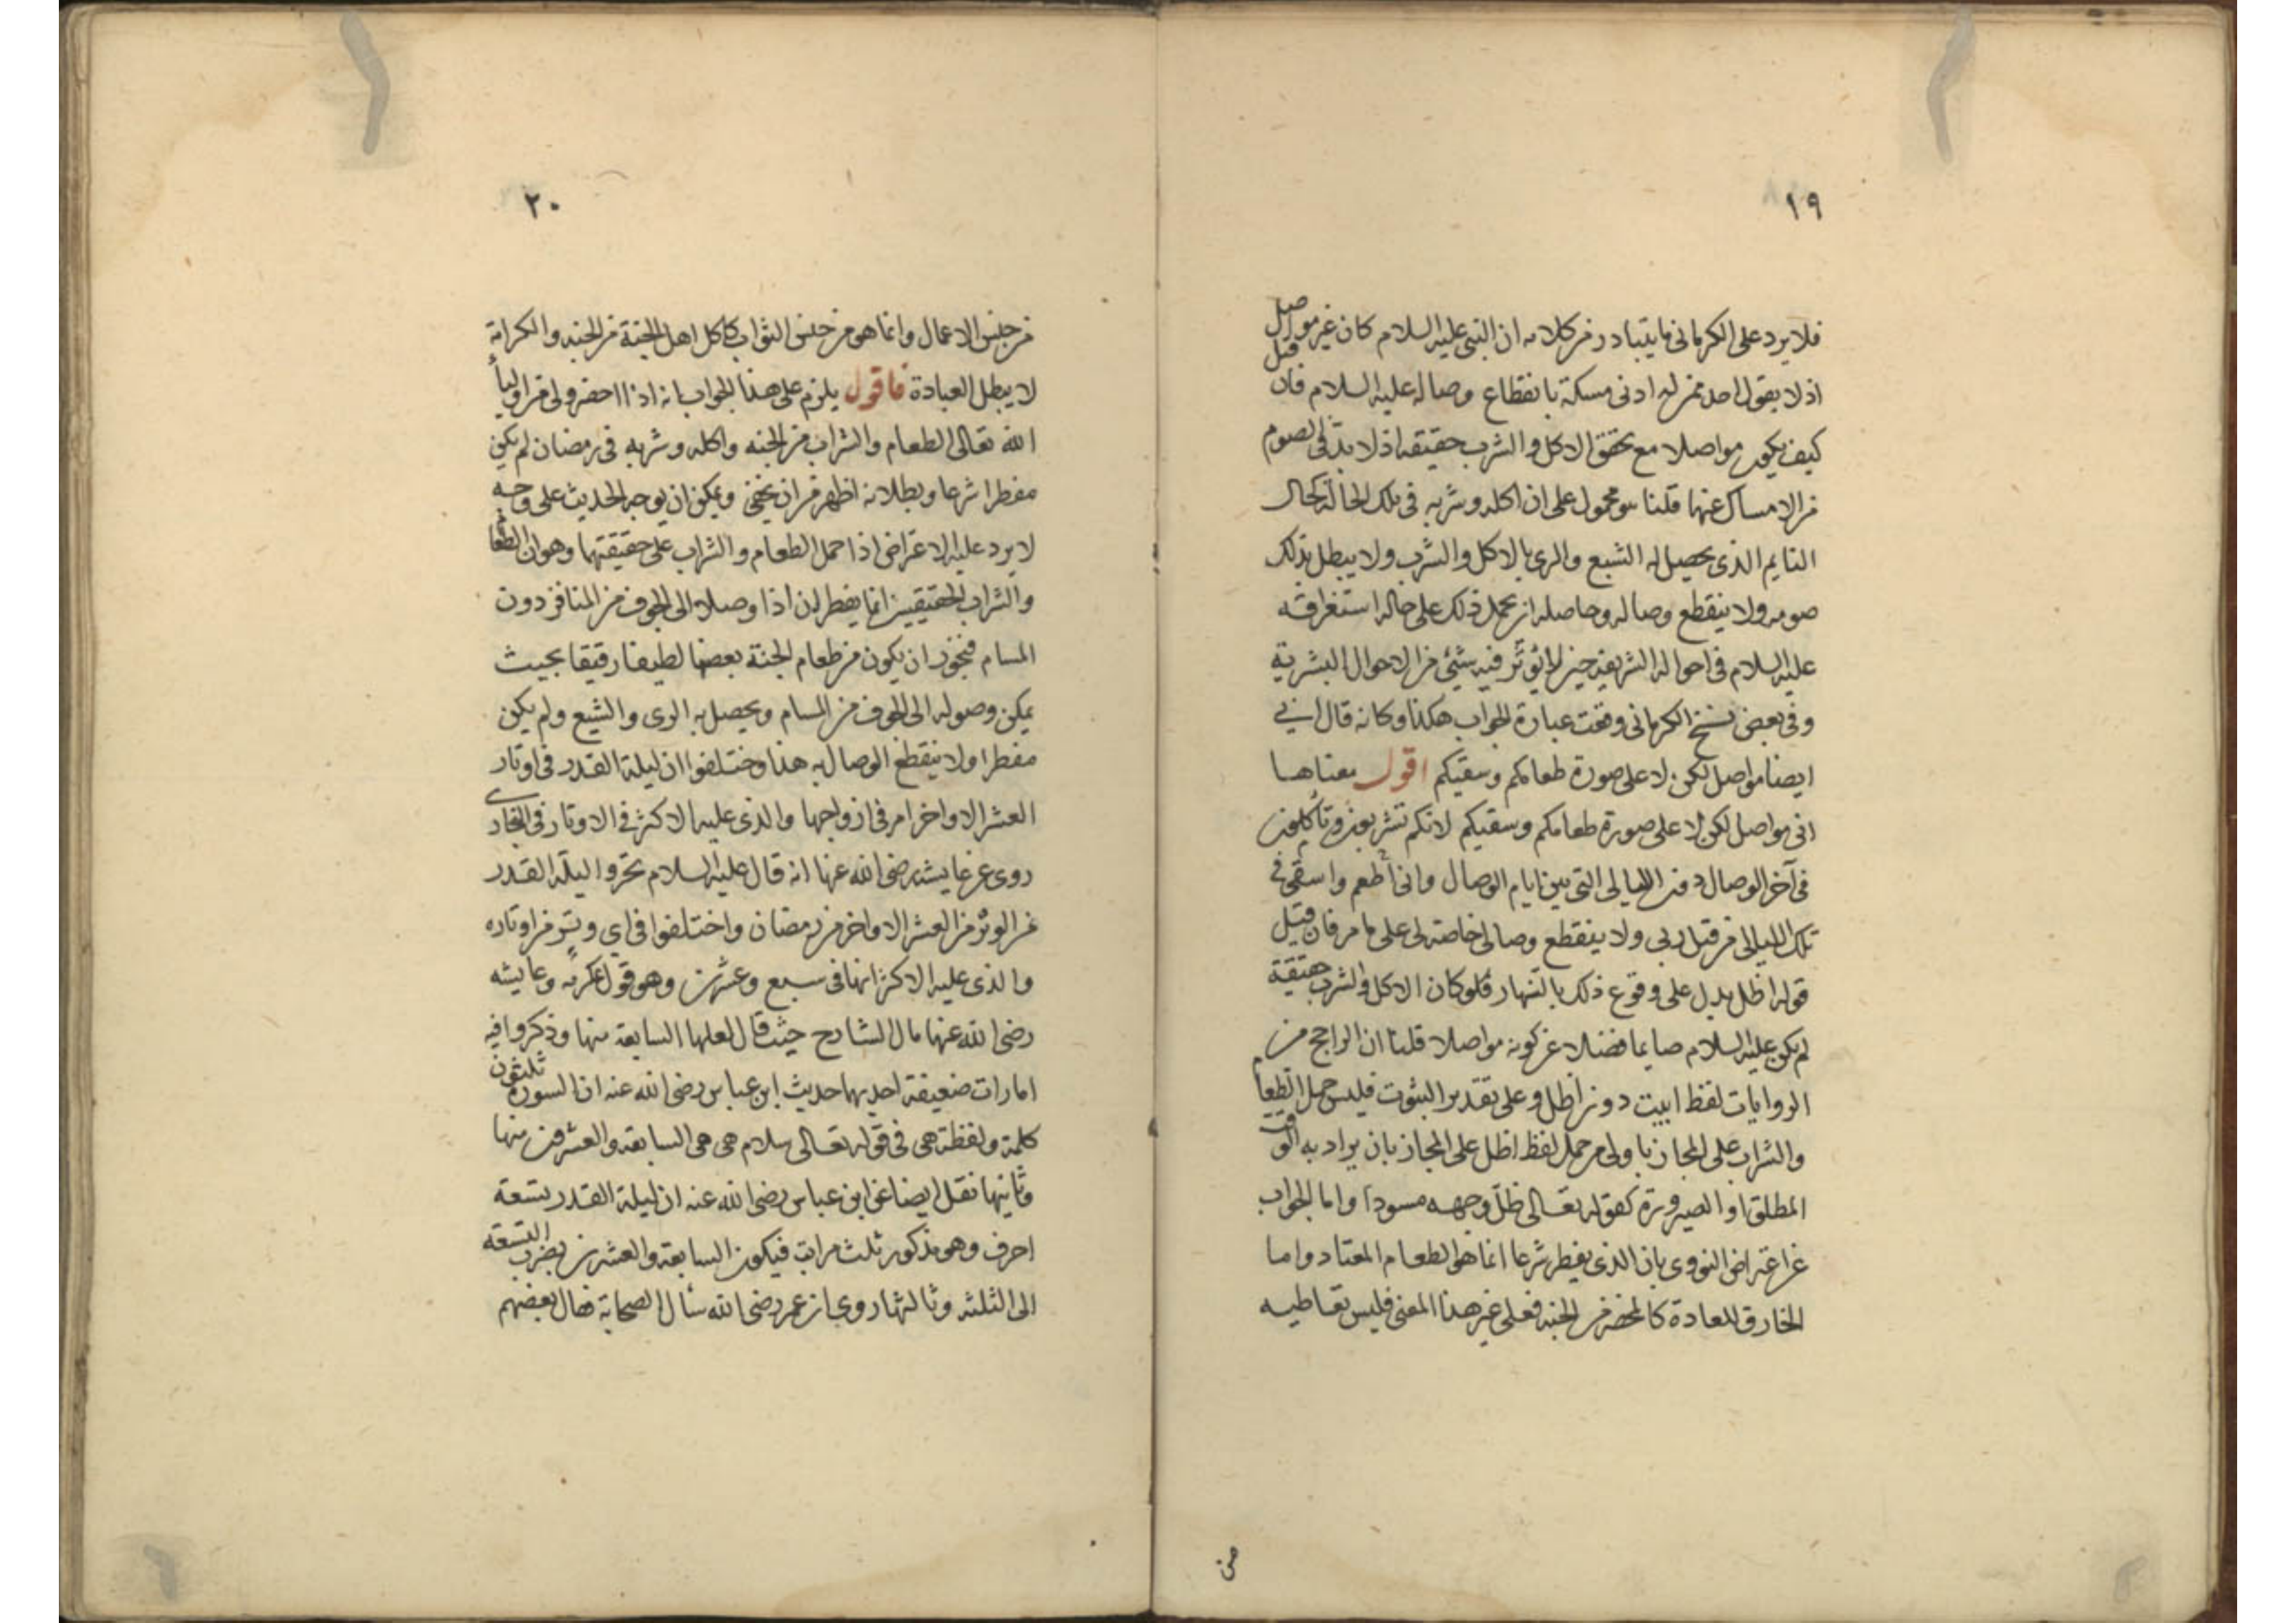 ١٩
فلا يرد على الكرمانى ما يتبادر من كلامه ان النبى عليه السلام كان غير مواصل
اذ لا يقول احد ممن له ادنى مسكة بانقطاع وصاله عليه السلام فان قيل
كيف يكون مواصلا مع تحقق الاكل والشرب حقيقة اذ لا بد فى الصوم
من الامساك عنهما قلنا هو محمول على ان اكله وشربه فى تلك الحالة كحال
النايم الذى يحصل له الشبع والرى بالاكل والشرب ولا يبطل بذلك
صومه ولا ينقطع وصاله وحاصله ان يحمل ذلك على حاله استغراقه
عليه السلام فى احواله الشريفة حين لا يؤثر فيه شئ من الاحوال البشرية
وفى بعض نسخ الكرمانى وقعت عبارة الجواب هكذا وكانه قال انى
ايضا مواصل لكن لا على صورة طعامكم وسقيكم اقول معناها
انى مواصل لكن لا على صورة طعامكم وسقيكم لانكم تشربون وتأكلون
فى آخر الوصال دون الليالى التى بين ايام الوصال وانى أطعم واسقى فى
تلك الليالى من قبل ربى ولا ينقطع وصالى خاصة لى على ما مر فان قيل
قوله اظل يدل على وقوع ذلك بالنهار فلو كان الاكل والشرب حقيقة
لم يكن عليه السلام صايما فضلا عن كونه مواصلا قلنا ان الراجح من
الروايات لفظ ابيت دون اظل وعلى تقدير الثبوت فليس حمل الطعام
والشراب على المجاز باولى من حمل لفظ اظل على المجاز بان يراد به الوقت
المطلق او الصيرورة كقوله تعالى ظل وجهه مسودا واما الجواب
عن اعتراض النووى بان الذى يفطر شرعا انما هو الطعام المعتاد واما
الخارق للعادة كالمحضر من الجنة فعلى غير هذا المعنى فليس تعاطيه
من
٢٠
من جنس الاعمال وانما هو من جنس الثواب كاكل اهل الجنة من الجنة والكرامة
لا يبطل العبادة فاقول يلزم على هذا الجواب بانه اذا احضر ولى من اولياء
الله تعالى الطعام والشراب من الجنة واكله وشربه فى رمضان لم يكن
مفطرا شرعا وبطلانه اظهر من ان يخفى ويمكن ان يوجه الحديث على وجه
لا يرد عليه الاعتراض اذا حمل الطعام والشراب على حقيقتهما وهو ان الطعام
والشراب الحقيقيين انما يفطران اذا وصلا الى الجوف من المنافذ دون
المسام فيجوز ان يكون من طعام الجنة بعضها لطيفا رقيقا بحيث
يمكن وصوله الى الجوف من المسام ويحصل به الرى والشبع ولم يكن
مفطرا ولا ينقطع الوصال به هذا واختلفوا ان ليلة القدر فى اوتار
العشر الاواخر ام فى ازواجها والذى عليه الاكثر فى الاوتار فى البخارى
روى عن عايشة رضى الله عنها انه قال عليه السلام تحروا ليلة القدر
فى الوتر من العشر الاواخر من رمضان واختلفوا فى اى وتر من اوتاره
والذى عليه الاكثر انها فى سبع وعشرين وهو قول عكرمة وعايشه
رضى الله عنها مال الشارح حيث قال لعلها السابعة منها وذكروا فيه
امارات ضعيفة احديها حديث ابن عباس رضى الله عنه ان السورة ثلثون
كلمة ولفظة هى فى قوله تعالى سلام هى هى السابعة والعشرون منها
وثانيها نقل ايضا عن ابن عباس رضى الله عنه ان ليلة القدر تسعة
احرف وهو مذكور ثلث مرات فيكون السابعة والعشرين بضرب التسعة
الى الثلثة وثالثها روى ان عمر رضى الله سأل الصحابة فقال بعضهم